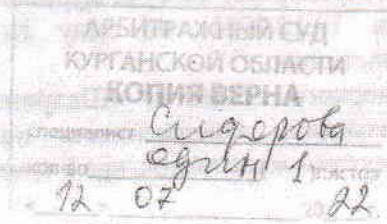 АРБИТРАЖНЫЙ СУД
КУРГАНСКОЙ ОБЛАСТИ
КОПИЯ ВЕРНА
специалист Сидорова
кол-во один 1 листов
12 07 22